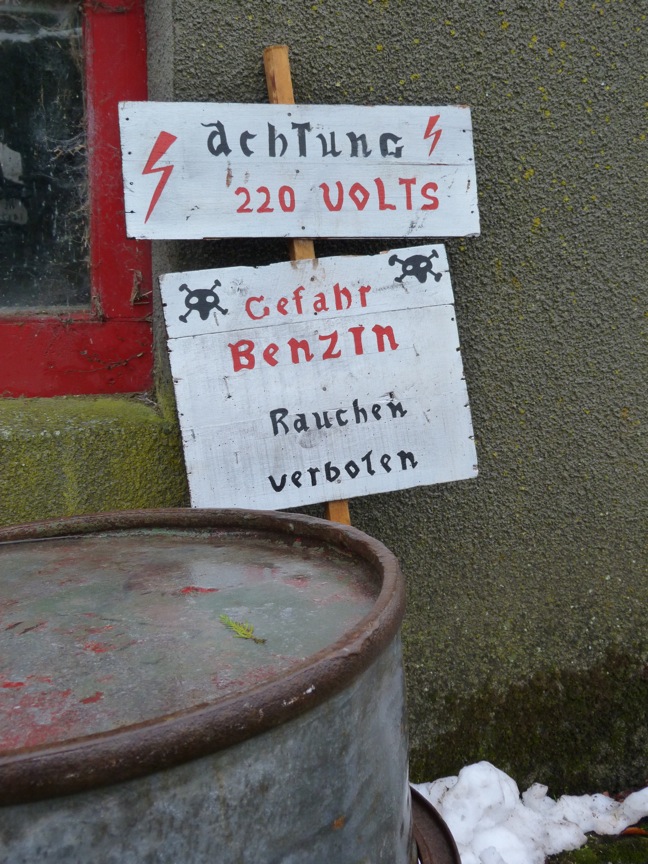 Achtung
220 VOLTS
Gefahr
Benzin
Rauchen
verboten